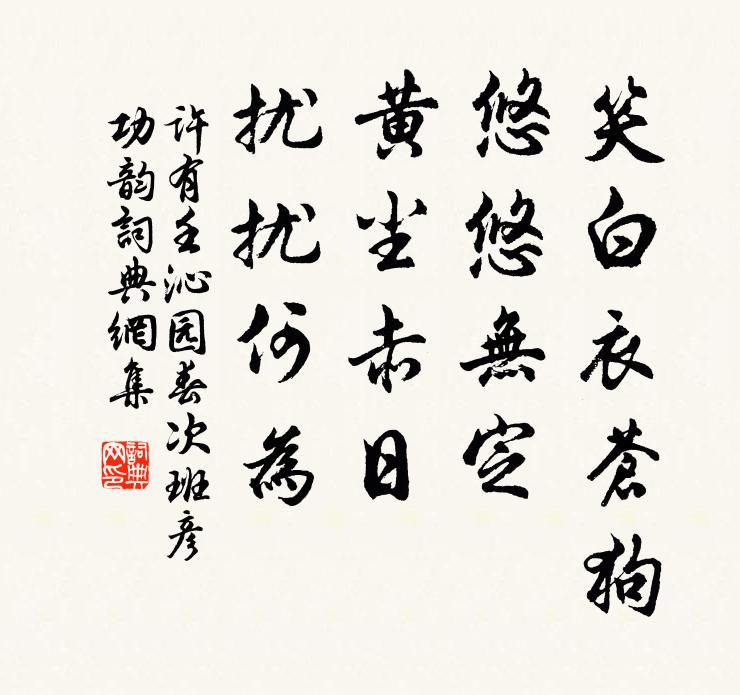 笑白衣苍狗
悠悠無定
黄尘赤日
扰扰何為
许有壬沁园春次班彦
功韵詞典網集
詞典
网印